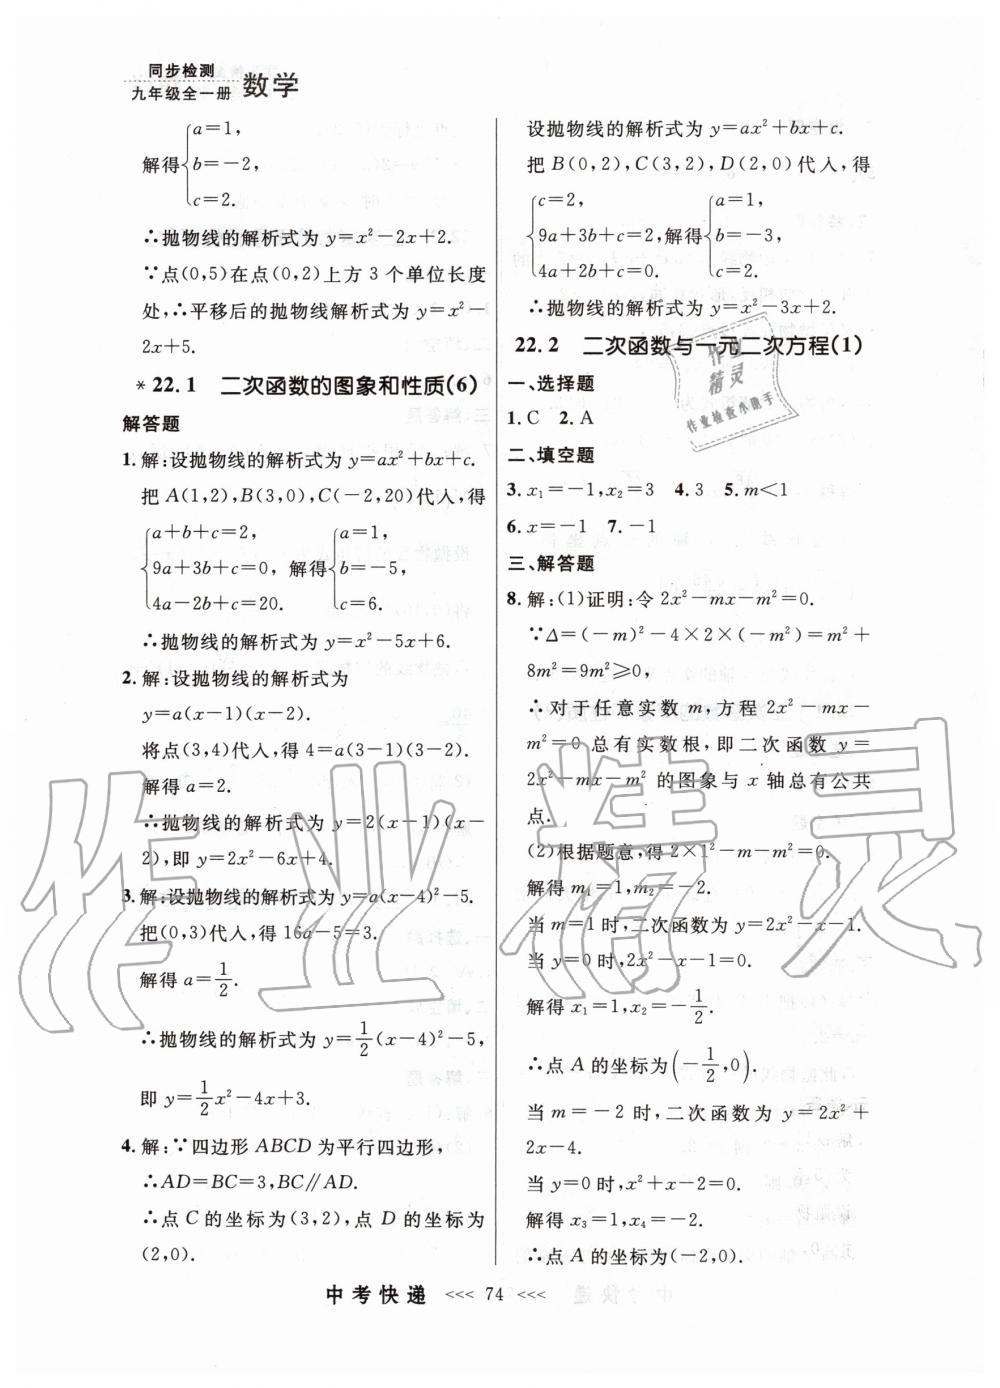 同步检测
九年级全一册 数学
解得{a=1,
b=-2,
c=2.
∴抛物线的解析式为 y=x²-2x+2.
∵点(0,5)在点(0,2)上方 3 个单位长度
处,∴平移后的抛物线解析式为 y=x²-
2x+5.
*22.1 二次函数的图象和性质(6)
解答题
1.解:设抛物线的解析式为 y=ax²+bx+c.
把 A(1,2),B(3,0),C(-2,20)代入,得
{a+b+c=2,
9a+3b+c=0,
4a-2b+c=20.
解得{a=1,
b=-5,
c=6.
∴抛物线的解析式为 y=x²-5x+6.
2.解:设抛物线的解析式为
y=a(x-1)(x-2).
将点(3,4)代入,得 4=a(3-1)(3-2).
解得 a=2.
∴抛物线的解析式为 y=2(x-1)(x-
2),即 y=2x²-6x+4.
3.解:设抛物线的解析式为 y=a(x-4)²-5.
把(0,3)代入,得 16a-5=3.
解得 a=1/2.
∴抛物线的解析式为 y=1/2(x-4)²-5,
即 y=1/2x²-4x+3.
4.解:∵四边形 ABCD 为平行四边形,
∴AD=BC=3,BC∥AD.
∴点 C 的坐标为(3,2),点 D 的坐标为
(2,0).
设抛物线的解析式为 y=ax²+bx+c.
把 B(0,2),C(3,2),D(2,0)代入,得
{c=2,
9a+3b+c=2,
4a+2b+c=0.
解得{a=1,
b=-3,
c=2.
∴抛物线的解析式为 y=x²-3x+2.
22.2 二次函数与一元二次方程(1)
一、选择题
1.C 2.A
二、填空题
3.x₁=-1,x₂=3 4.3 5.m<1
6.x=-1 7.-1
三、解答题
8.解:(1)证明:令 2x²-mx-m²=0.
∵Δ=(-m)²-4×2×(-m²)=m²+
8m²=9m²≥0,
∴对于任意实数 m,方程 2x²-mx-
m²=0 总有实数根,即二次函数 y=
2x²-mx-m² 的图象与 x 轴总有公共
点.
(2)根据题意,得 2×1²-m-m²=0.
解得 m₁=1,m₂=-2.
当 m=1 时,二次函数为 y=2x²-x-1.
当 y=0 时,2x²-x-1=0.
解得 x₁=1,x₂=-1/2.
∴点 A 的坐标为(-1/2,0).
当 m=-2 时,二次函数为 y=2x²+
2x-4.
当 y=0 时,x²+x-2=0.
解得 x₃=1,x₄=-2.
∴点 A 的坐标为(-2,0).
作业
精灵
作业检查小助手
作业精灵
中考快递 <<< 74 <<<